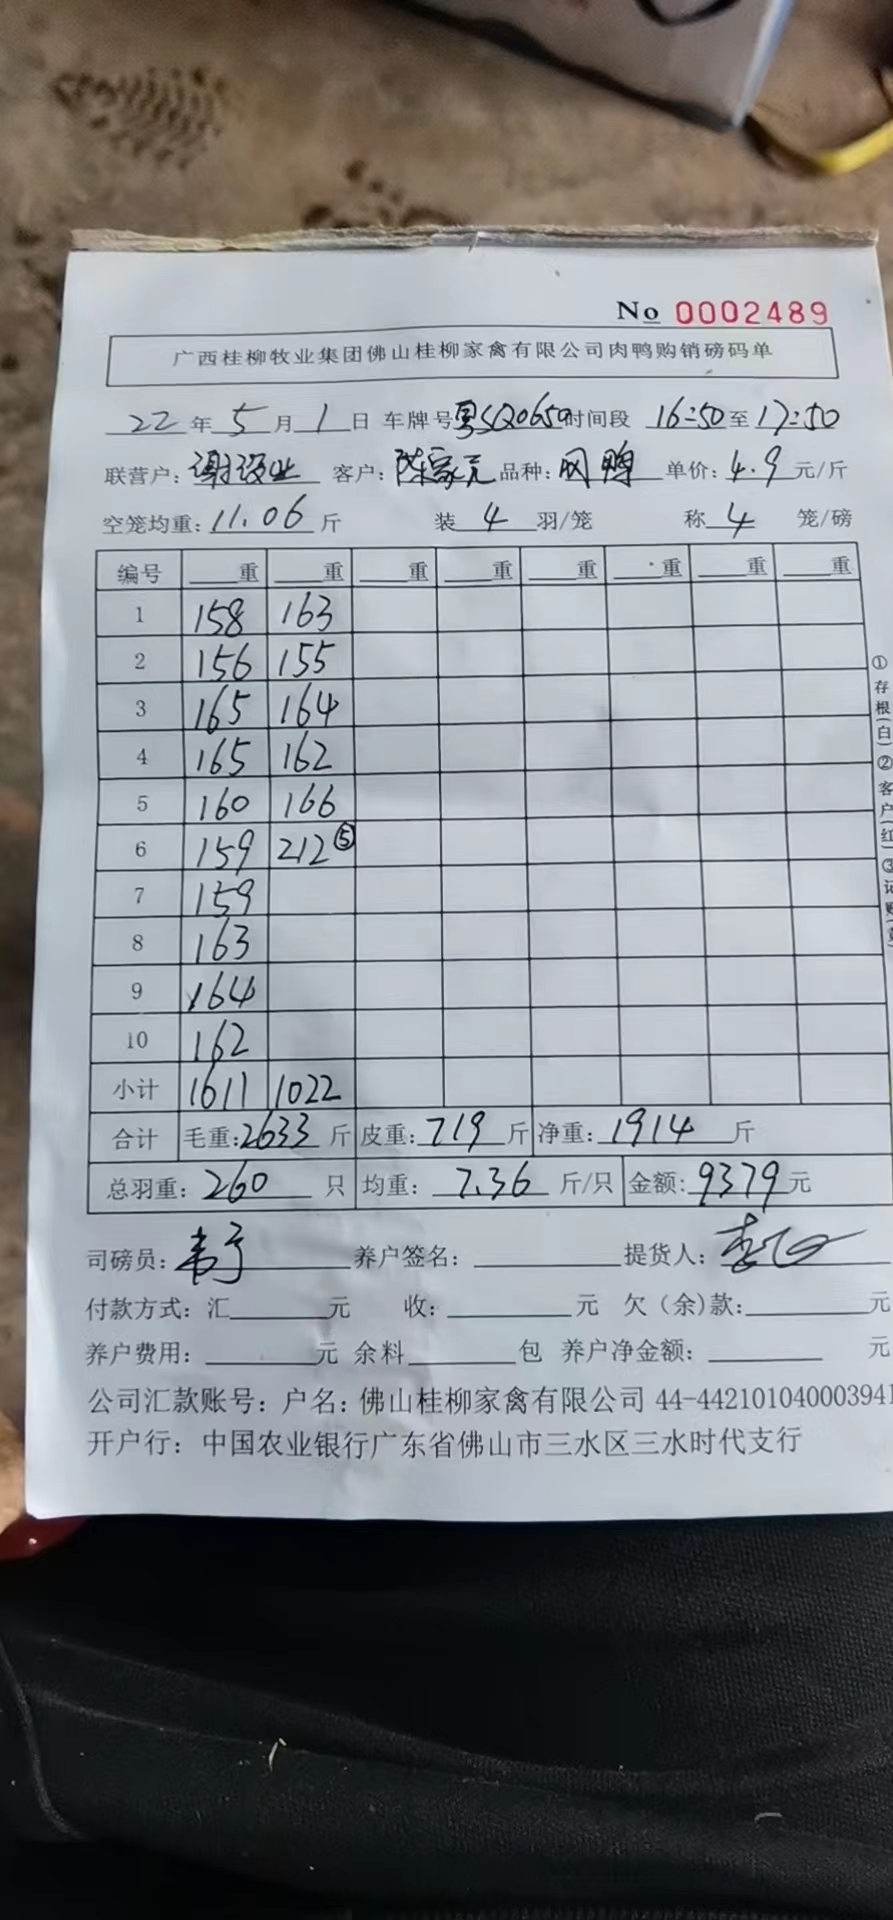 No 0002489
广西桂柳牧业集团佛山桂柳家禽有限公司肉鸭购销磅码单
22年5月1日 车牌号粤SQ0650时间段 16:50至17:50
联营户: 客户:陈家元品种:网鸭 单价:4.9元/斤
空笼均重:11.06斤 装4羽/笼 称4笼/磅
编号 重 重 重 重 重 重 重 重
1 158 163
2 156 155
3 165 164
4 165 162
5 160 166
6 159 212⑤
7 159
8 163
9 164
10 162
小计 1611 1022
合计 毛重:2633斤 皮重:719斤 净重:1914斤
总羽重:260只 均重:7.36斤/只 金额:9379元
司磅员: 养户签名: 提货人:
付款方式:汇 元 收: 元 欠(余)款: 元
养户费用: 元 余料 包 养户净金额: 元
公司汇款账号:户名:佛山桂柳家禽有限公司 44-442101040003941
开户行:中国农业银行广东省佛山市三水区三水时代支行
①存根(白)②客户(红)③记账(黄)